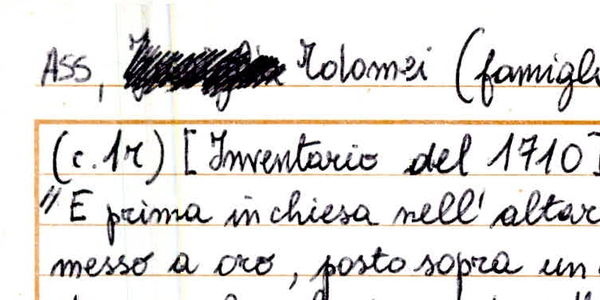 ASS, Tolomei (famigli
(c.1r) [Inventario del 1710]
"E prima in chiesa nell'altar
messo a oro, posto sopra un